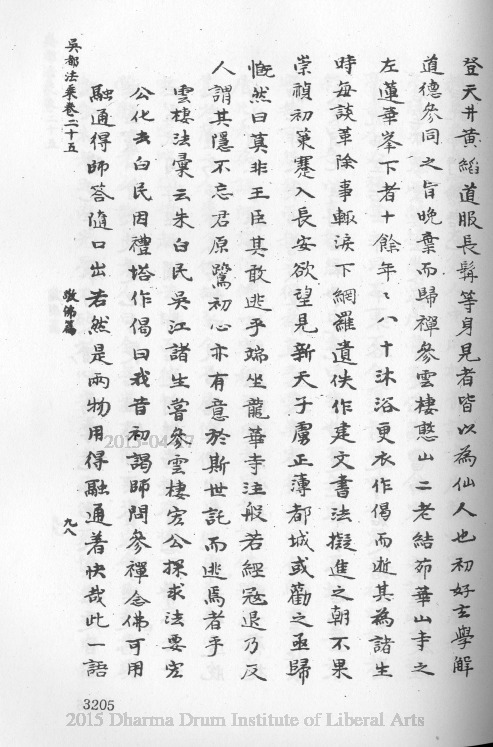 登天井黃縚道服長髯等身見者皆以為仙人也初好玄學解
道德參同之旨晚棄而歸禪參雲棲憨山二老結茆華山寺之
左蓮華峯下者十餘年〻八十沐浴更衣作偈而逝其為諸生
時每談革除事輒淚下網羅遺佚作建文書法擬進之朝不果
崇禎初策蹇入長安欲望見新天子虜正薄都城或勸之亟歸
慨然曰莫非王臣其敢逃乎端坐龍華寺注般若經寇退乃反
人謂其隱不忘君原鷺初心亦有意於斯世託而逃焉者乎
雲棲法彙云朱白民吳江諸生嘗參雲棲宏公探求法要宏
公化去白民因禮塔作偈曰我昔初謁師問參禪念佛可用
融通得師答隨口出若然是兩物用得融通着快哉此一語
吳都法乘卷二十五
敬佛篇
九八
3205
2015-04-27
2015 Dharma Drum Institute of Liberal Arts